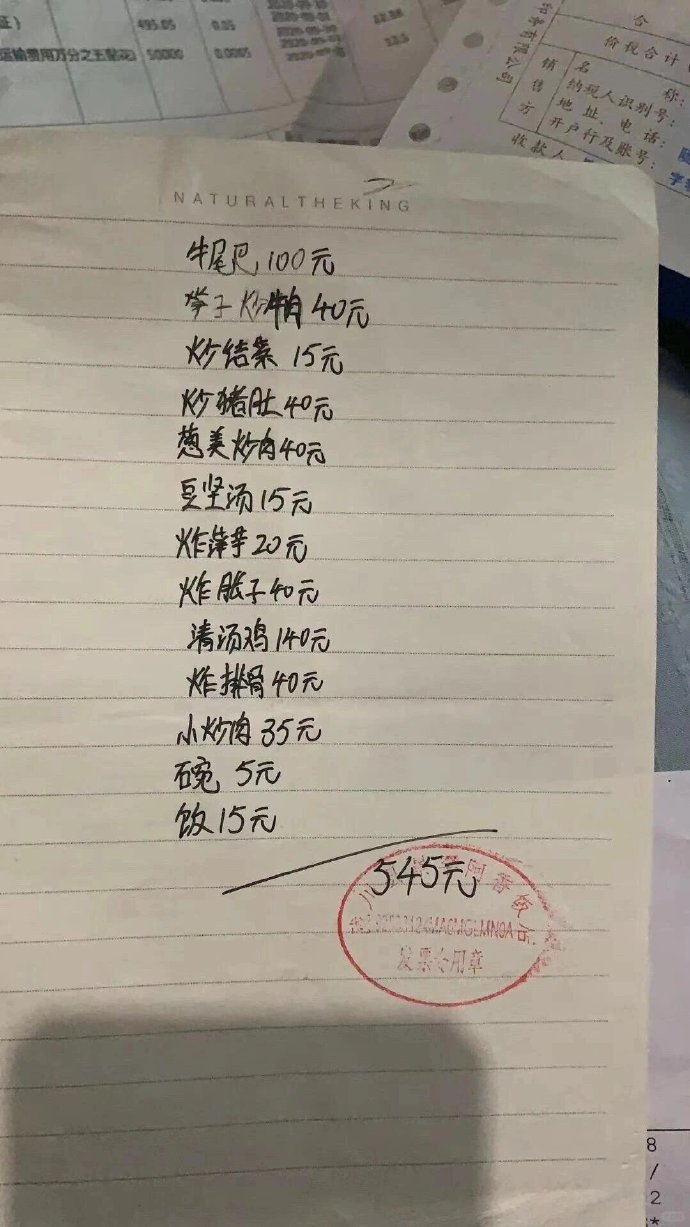 495.05
0.05
运输费用万分之五贴花)
50000
0.0005
合
价税合计
销售方
名 称:
纳税人识别号:
地 址、电 话:
开户行及账号:
收款人
务有限公司
NATURALTHEKING
牛尾巴 100元
40元
炒结 15元
炒猪肚 40元
葱美炒肉 40元
豆坚汤 15元
炸 20元
炸胀子 40元
清汤鸡 140元
炸排骨 40元
小炒肉 35元
石宛 5元
饭 15元
545元
阿香饭店
发票专用章
8
/
2